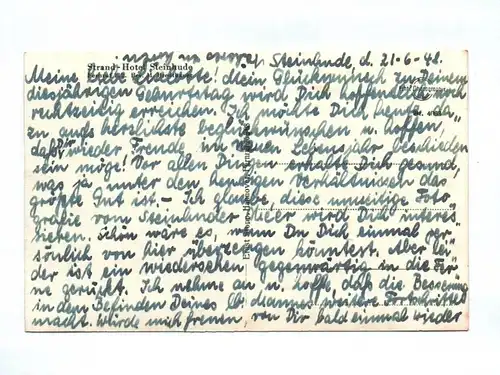 Strand-Hotel Steinhude
Steinhude, d. 21-6-48.
Meine liebe Liselotte! Mein Glückwunsch zu Deinem
diesjährigen Geburtstag wird Dich hoffentlich noch
rechtzeitig erreichen. Ich möchte Dich heute da
zu aufs herzlichste beglückwünschen u. hoffen,
daß Dir wieder Freude im neuen Lebensjahr beschieden
sein möge! Vor allen Dingen erhalte Dich gesund,
was ja unter den heutigen Verhältnissen das
größte Gut ist. – Ich glaube, diese umseitige Foto
grafie vom Steinhuder Meer wird Dich interes
sieren. Schön wäre es, wenn Du Dich einmal per-
sönlich von hier überzeugen könntest. Aber lei
der ist ein Wiedersehen gegenwärtig in die Fer
ne gerückt. Ich nehme an u. hoffe, daß die Besserung
in dem Befinden Deines lb. Mannes weitere Fortschritte
macht. Würde mich freuen, von Dir bald einmal wieder